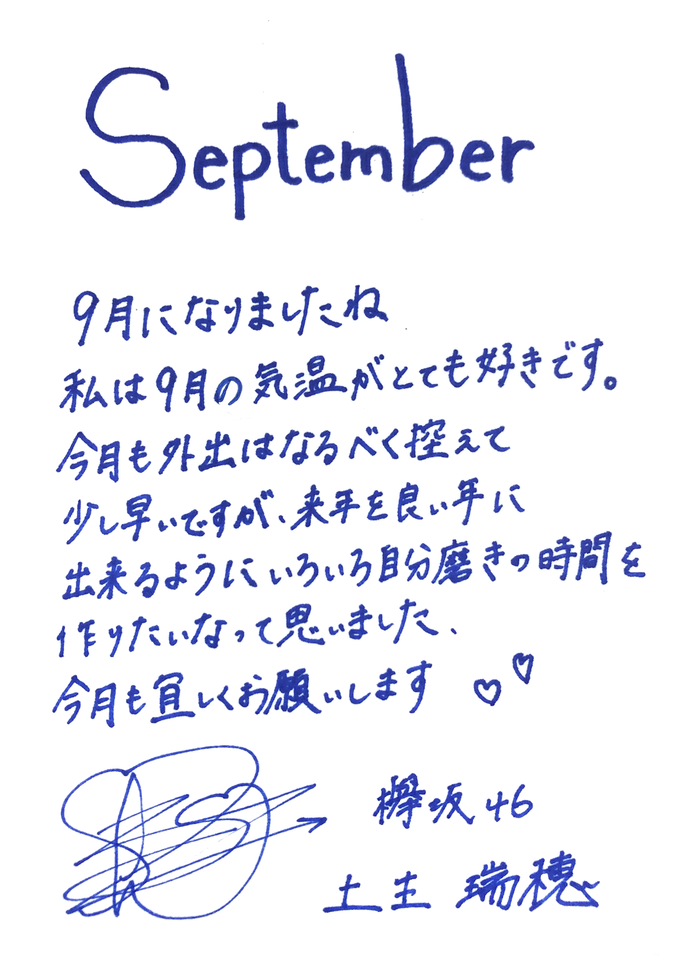 September
9月になりましたね
私は9月の気温がとても好きです。
今月も外出はなるべく控えて
少し早いですが、来年を良い年に
出来るようにいろいろ自分磨きの時間を
作りたいなって思いました、
今月も宜しくお願いします ♡♡
欅坂46
土生 瑞穂